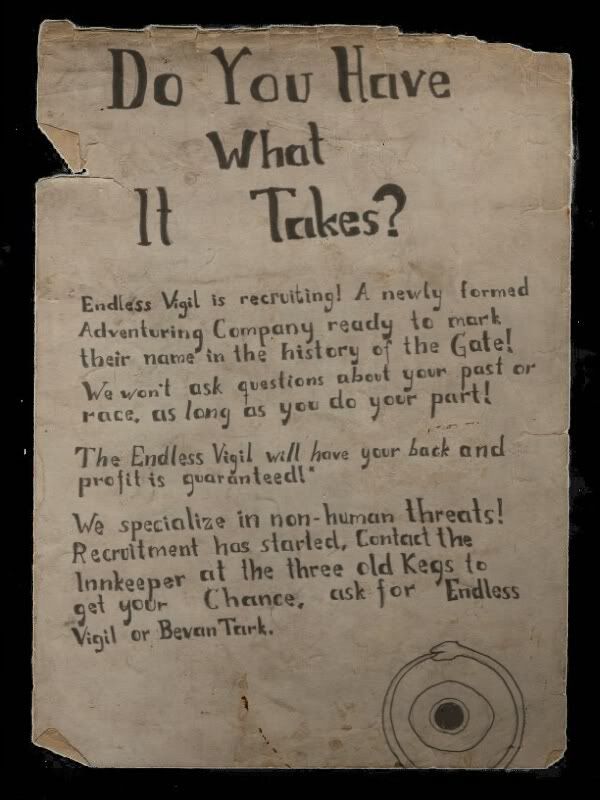 Do You Have
What
It Takes?
Endless Vigil is recruiting! A newly formed
Adventuring Company ready to mark
their name in the history of the Gate!
We won't ask questions about your past or
race, as long as you do your part!
The Endless Vigil will have your back and
profit is guaranteed!*
We specialize in non-human threats!
Recruitment has started, Contact the
Innkeeper at the three old Kegs to
get your Chance, ask for "Endless
Vigil or Bevan Tark.